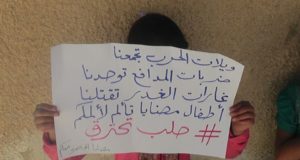 ويلات الحرب تجمعنا
ضربات المدافع توحدنا
غارات الغدر تقتلنا
أطفال مضايا تألم لألمكم
# حلب تحترق